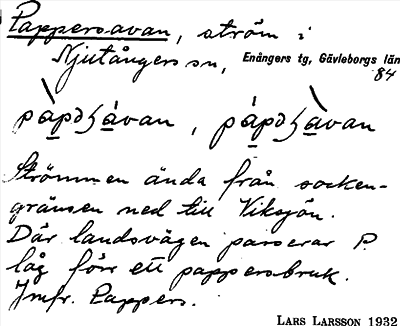 Pappersavan, ström i
Njutångers sn, Enångers tg, Gävleborgs län
84
pàpəʂávan, pápəʂàvan
Strömmen ända från socken-
gränsen ned till Viksjön.
Där landsvägen passerar P.
låg förr ett pappersbruk.
Jmfr. Pappers.
LARS LARSSON 1932